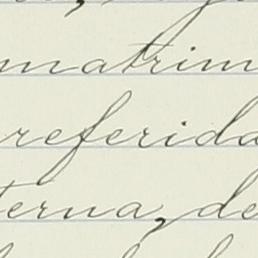 matrim
referida
terna, de